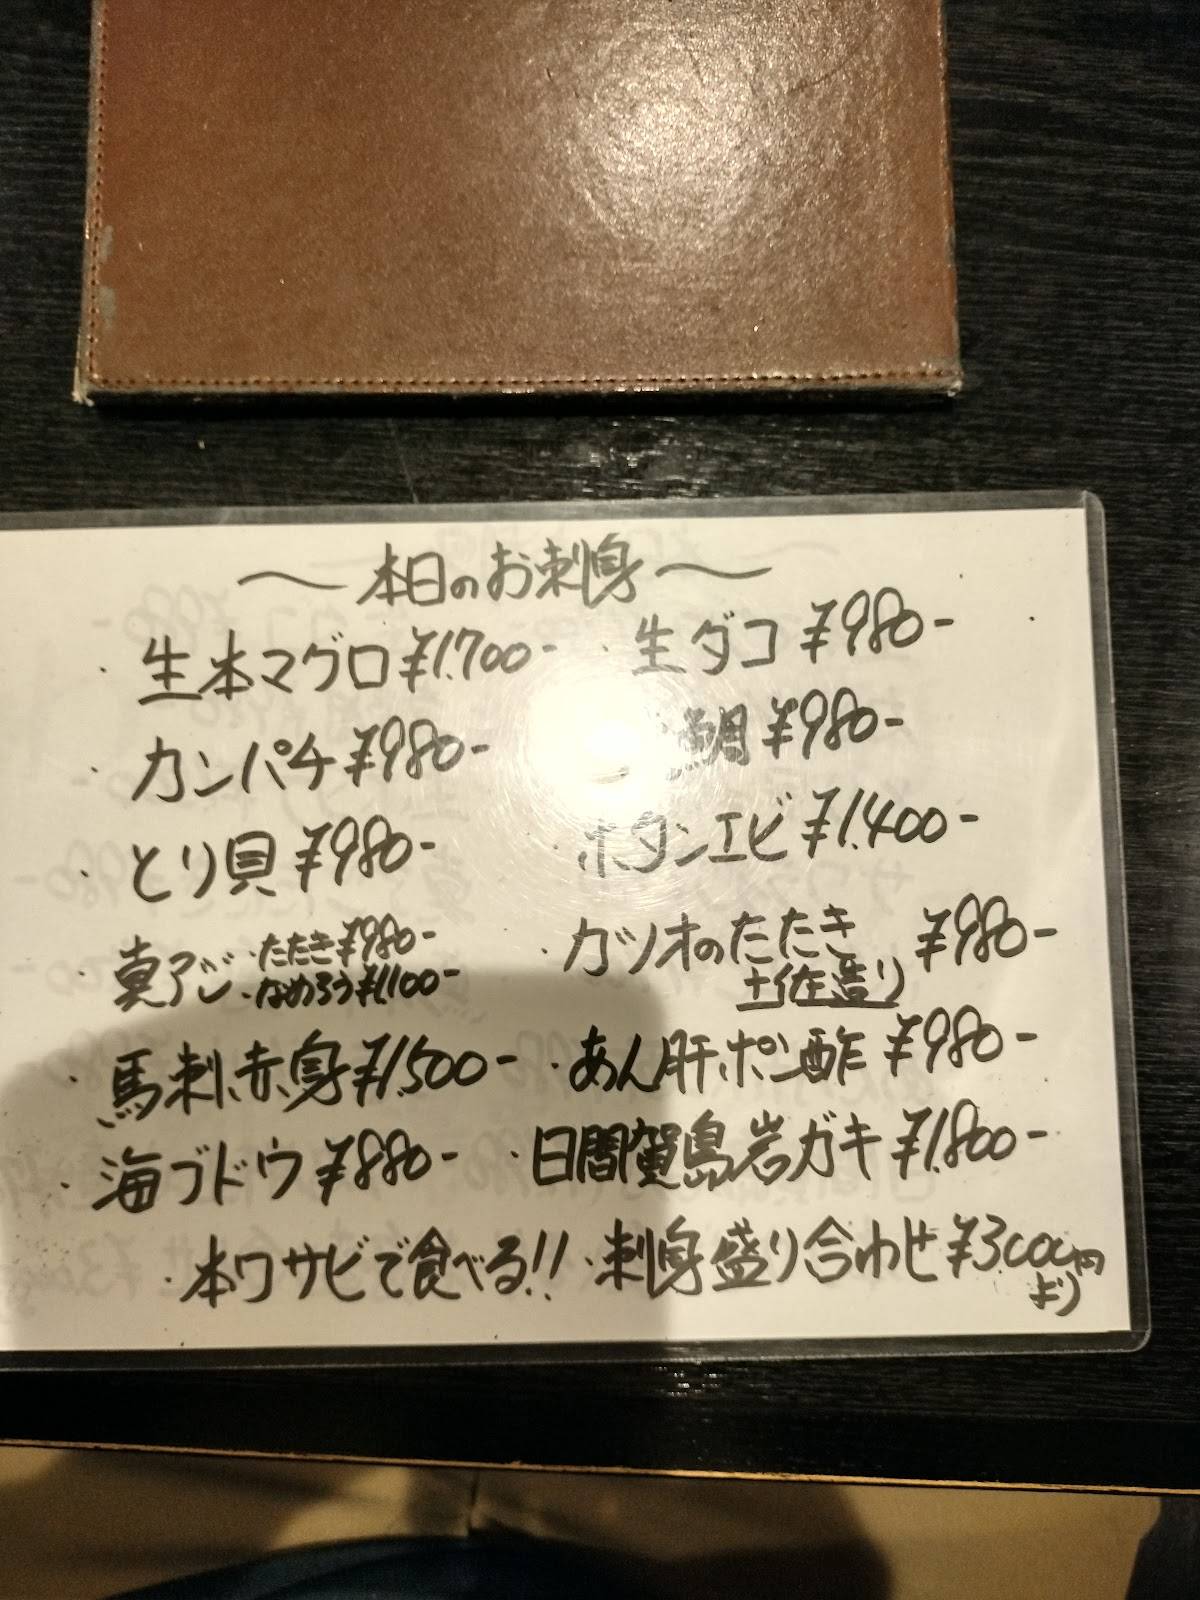 〜本日のお刺身〜
・生本マグロ ¥1.700-
・生ダコ ¥980-
・カンパチ ¥980-
鯛 ¥980-
・とり貝 ¥980-
・ボタンエビ ¥1.400-
・真アジ ・たたき ¥980-
・なめろう ¥1,100-
・カツオのたたき ¥980-
土佐造り
・馬刺赤身 ¥1.500-
・あん肝ポン酢 ¥980-
・海ブドウ ¥880-
・日間賀島岩ガキ ¥1.800-
・本ワサビで食べる!!・刺身盛り合わせ ¥3.000円
より